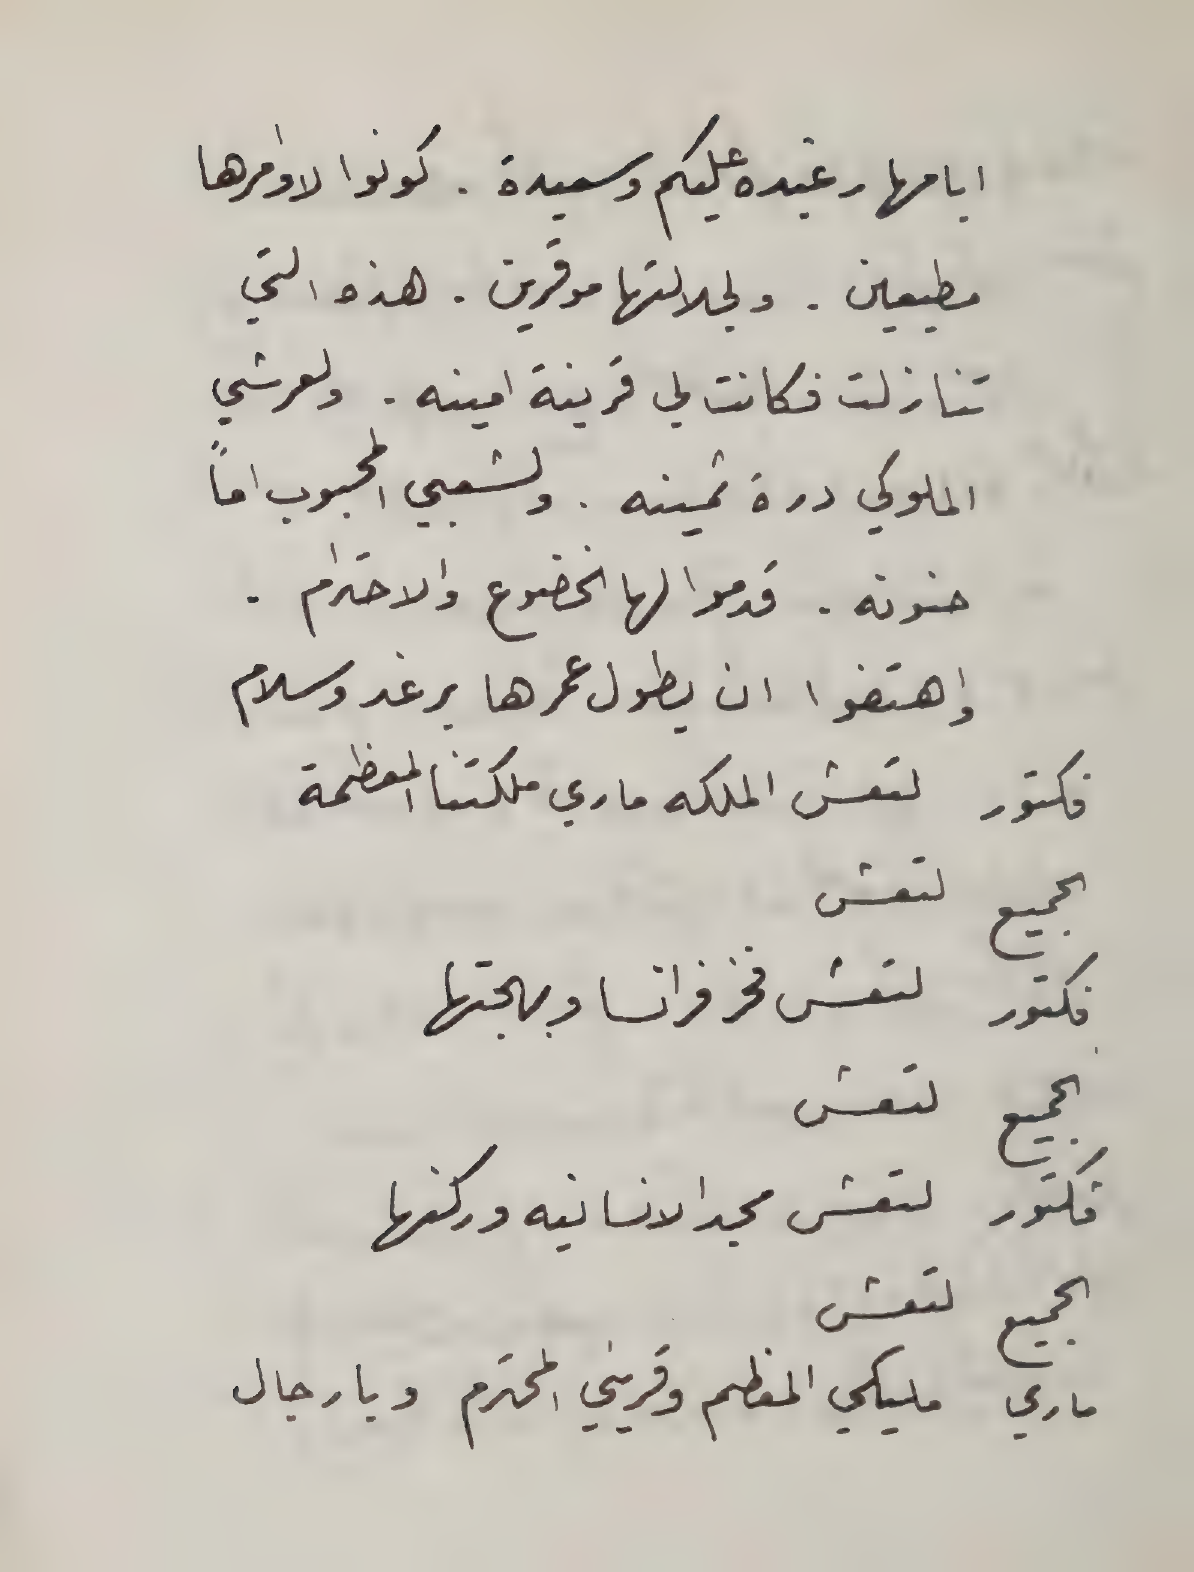 ايامها رغيده عليكم وسعيدة . كونوا لاوامرها
مطيعين . ولجلالتها موقرين . هذه التي
تنازلت فكانت لي قرينة امينه . ولعرشي
الملوكي درة ثمينه . ولشعبي المحبوب اماً
حنونه . قدموا لها الخضوع والاحترام .
واهتفوا ان يطول عمرها برغد وسلام
فكتور لتعش الملكه ماري ملكتنا المعظمة
الجميع لتعش
فكتور لتعش فخر فرانسا وبهجتها
الجميع لتعش
فكتور لتعش مجد الانسانيه وركنها
الجميع لتعش
ماري مليكي المعظم وقريني المحترم ويا رجال